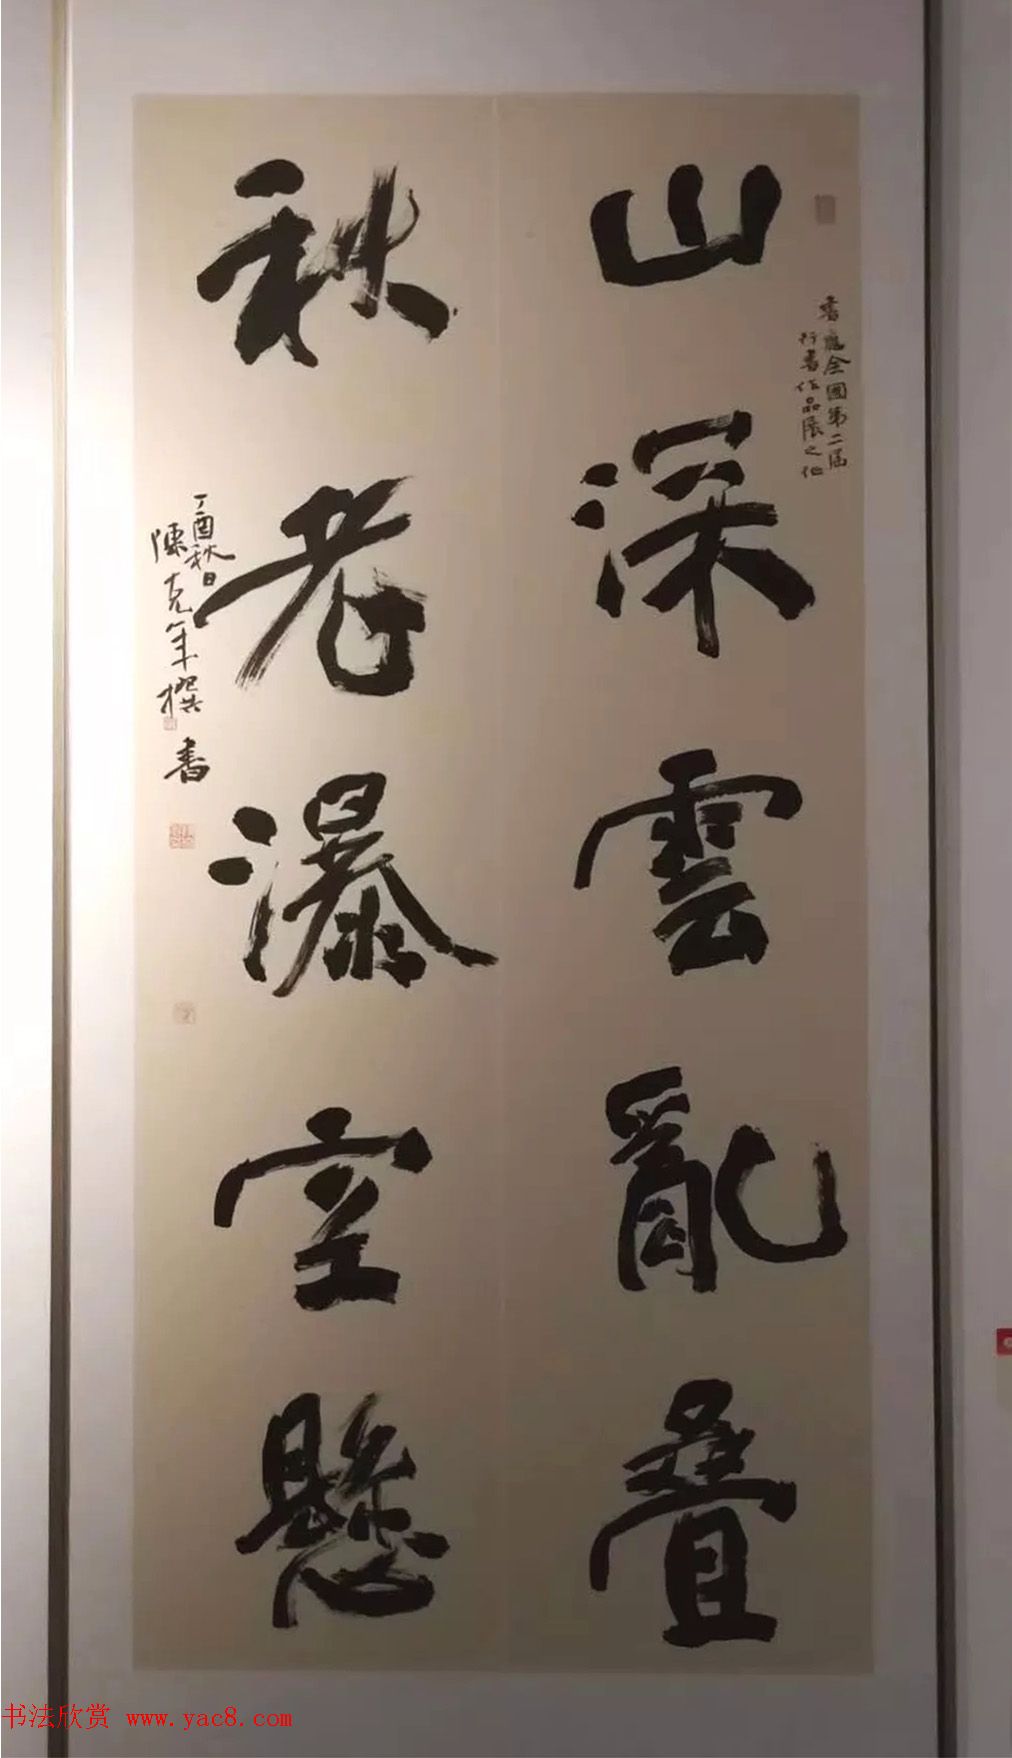 山深雲亂叠
書應全國第二屆
行書作品展之化
秋老瀑空懸
丁酉秋日
陳克年撰書
书法欣赏 www.yac8.com